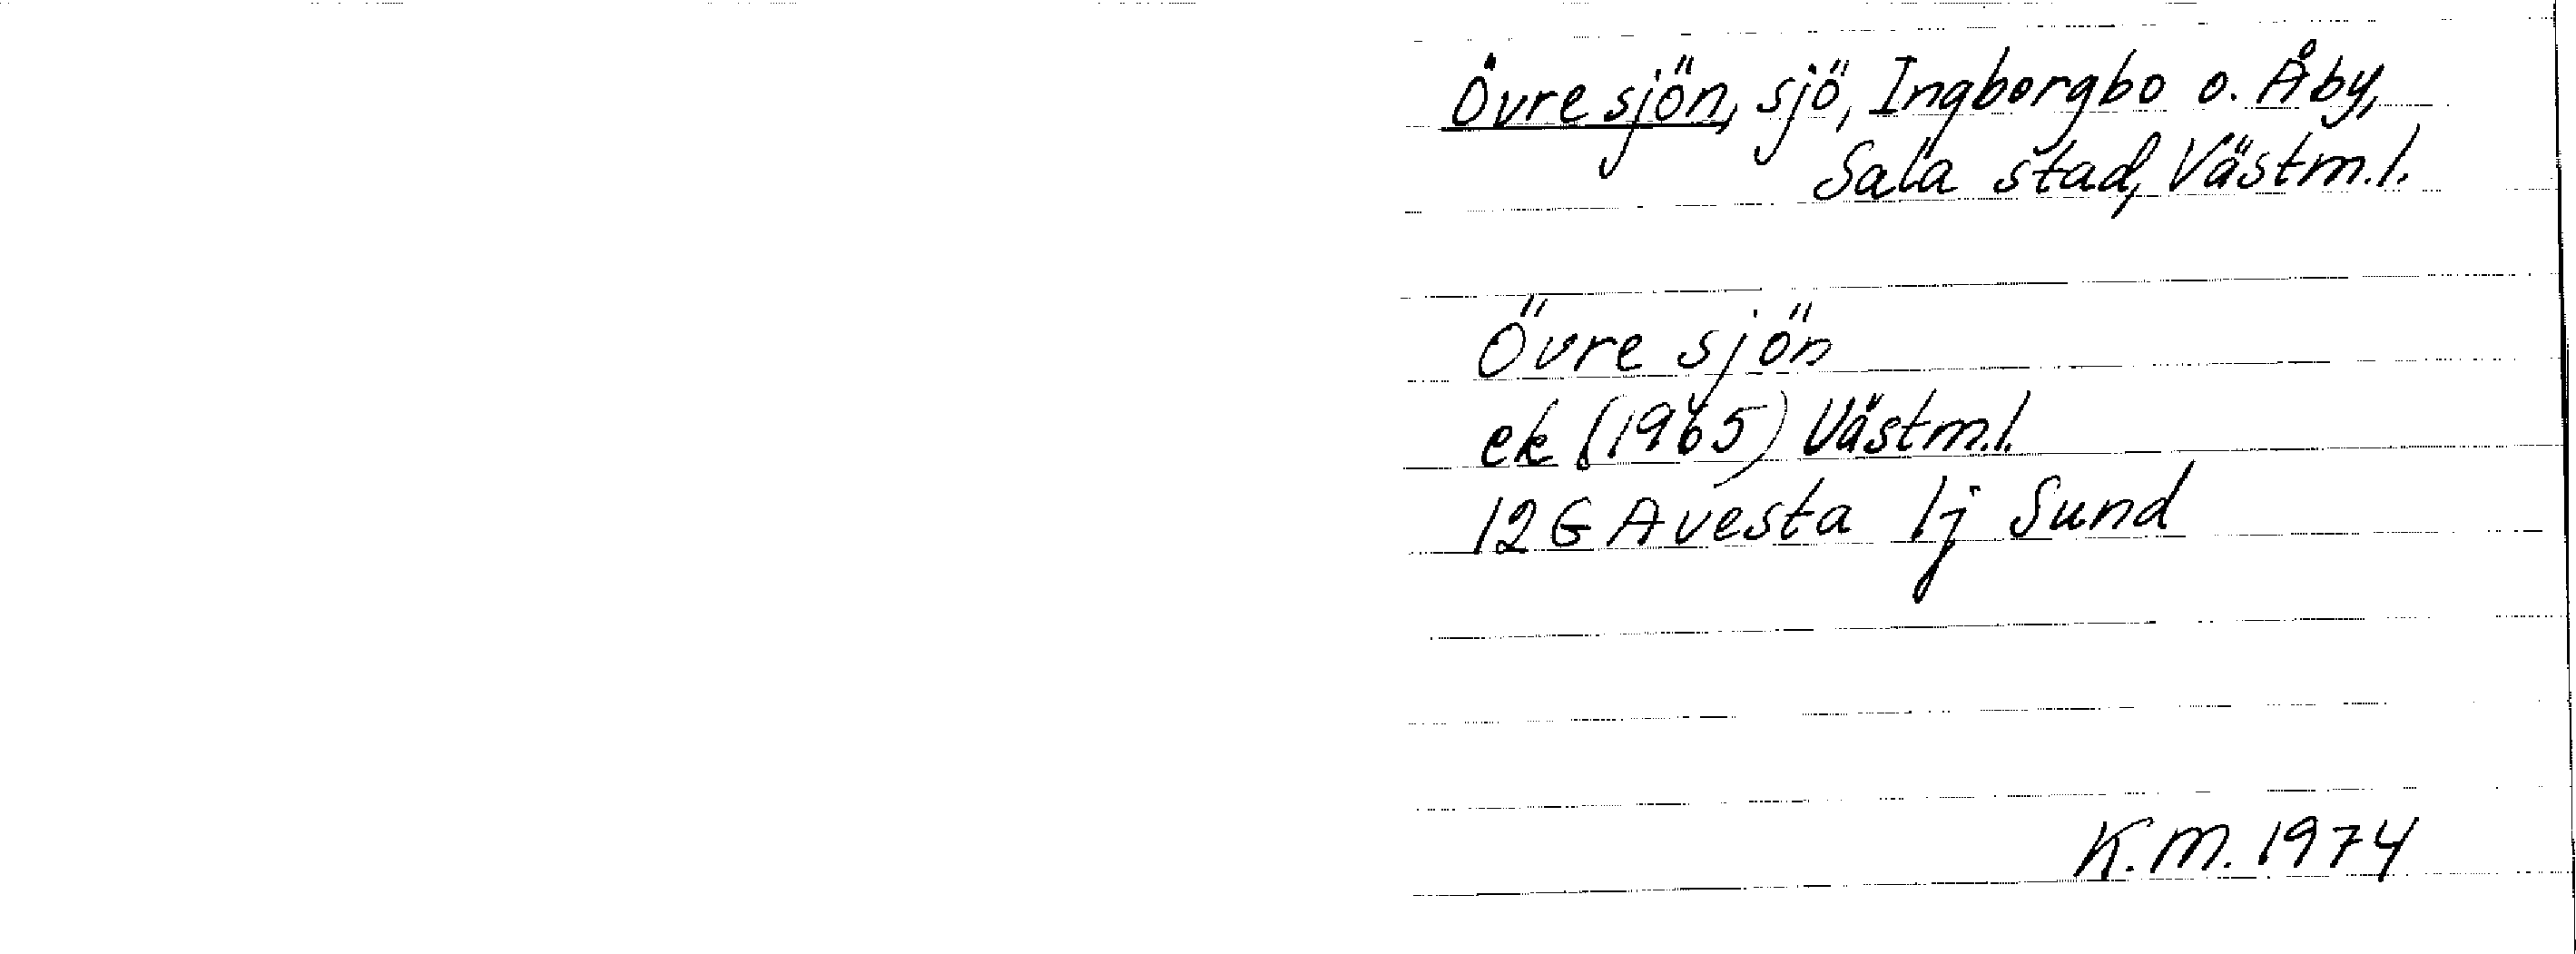 Övre sjön, sjö, Ingborgbo o. Åby,
Sala stad, Västm.l.
Övre sjön
ek (1965) Västm.l.
12G Avesta 1j Sund
K.M. 1974